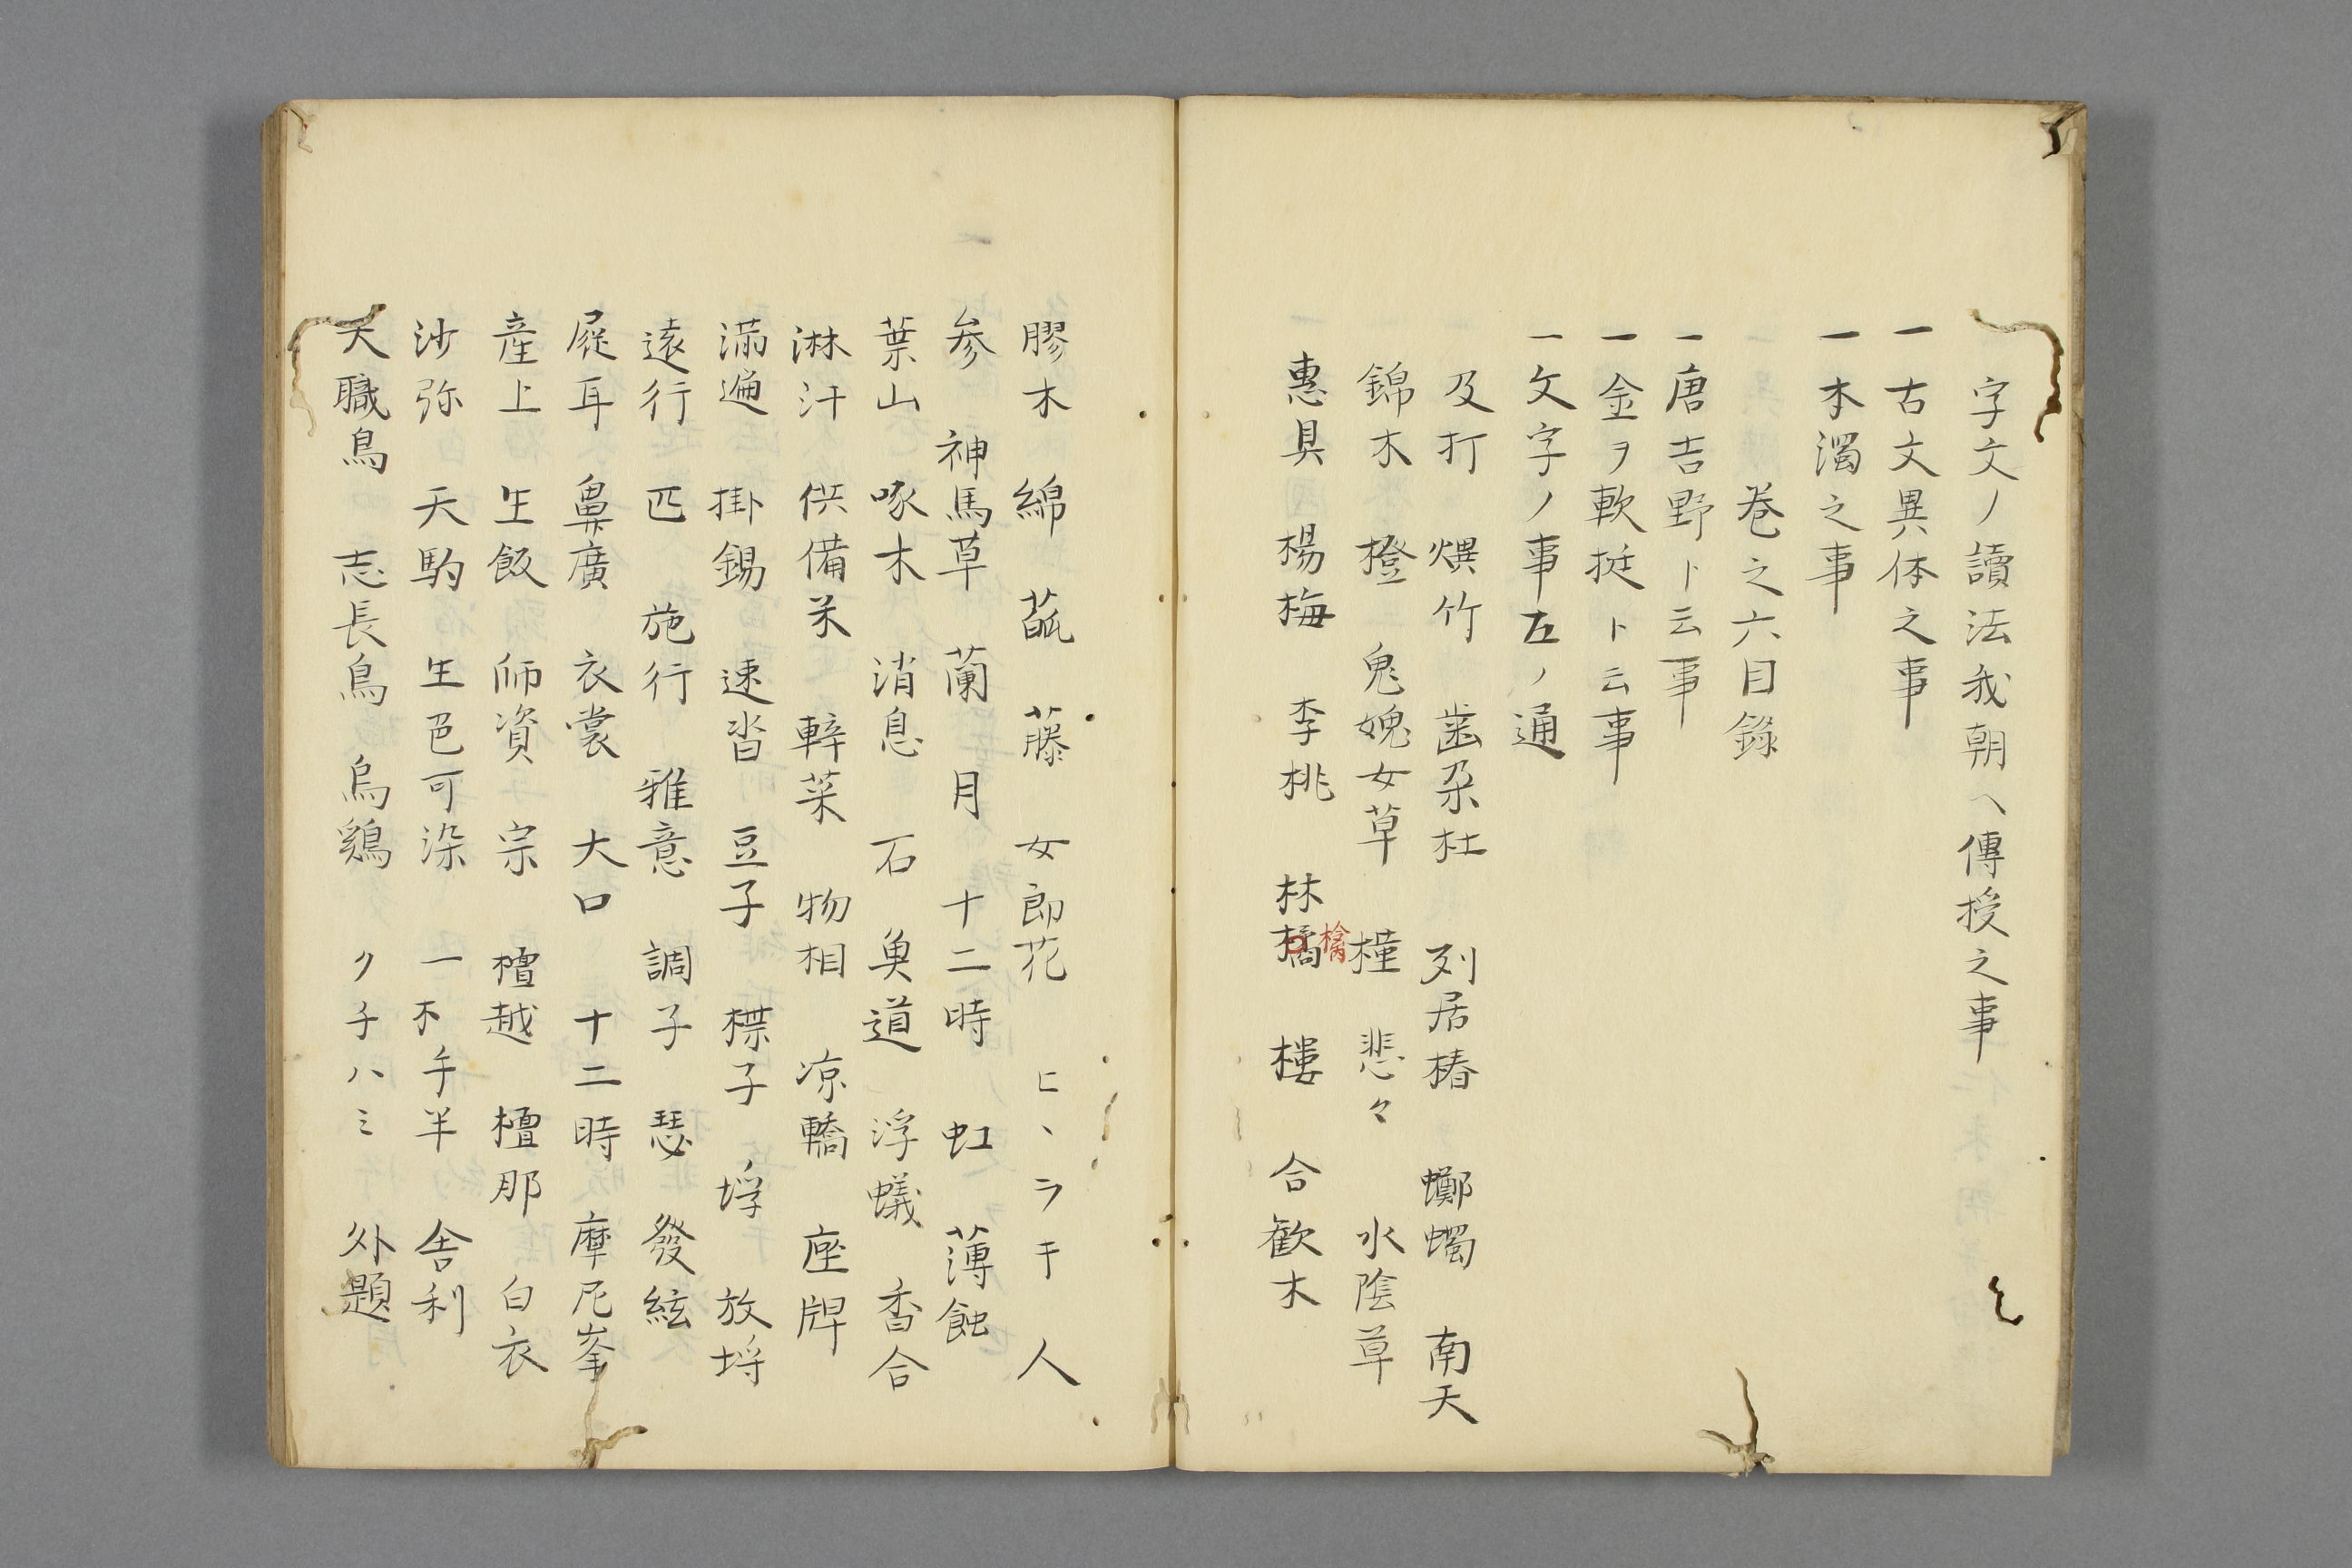 一字文ノ讀法我朝ヘ傳授之事
一古文異体之事
一本濁之事
巻之六目錄
一唐吉野ト云事
一金ヲ軟挺ト云事
一文字ノ事左ノ通
及打 熼竹 歯朶杜 列居椿 蠰蠋 南天
錦木 橙 鬼媿女草 橦 悲々 水陰草
惠具 楊梅 李桃 林橘 檎 樓 合歓木
膠木 綿 菰 藤 女郎花 ヒヽラキ 人
参 神馬草 蘭 月 十二時 虹 薄蝕
葉山 啄木 消息 石 奠道 浮蟻 香合
淋汗 供備米 辢菜 物相 凉轎 座牌
滿遍 掛錫 速沓 豆子 楪子 垺 放垺
遠行 匹 施行 雅意 調子 瑟 發絃
屣耳 鼻廣 衣裳 大口 十二時 摩尼峯
産上 生飯 師資 宗 檀越 檀那 白衣
沙弥 天馰 生巴可染 一不手半 舎利
天職鳥 志長鳥 烏鷄 クチハミ 外題